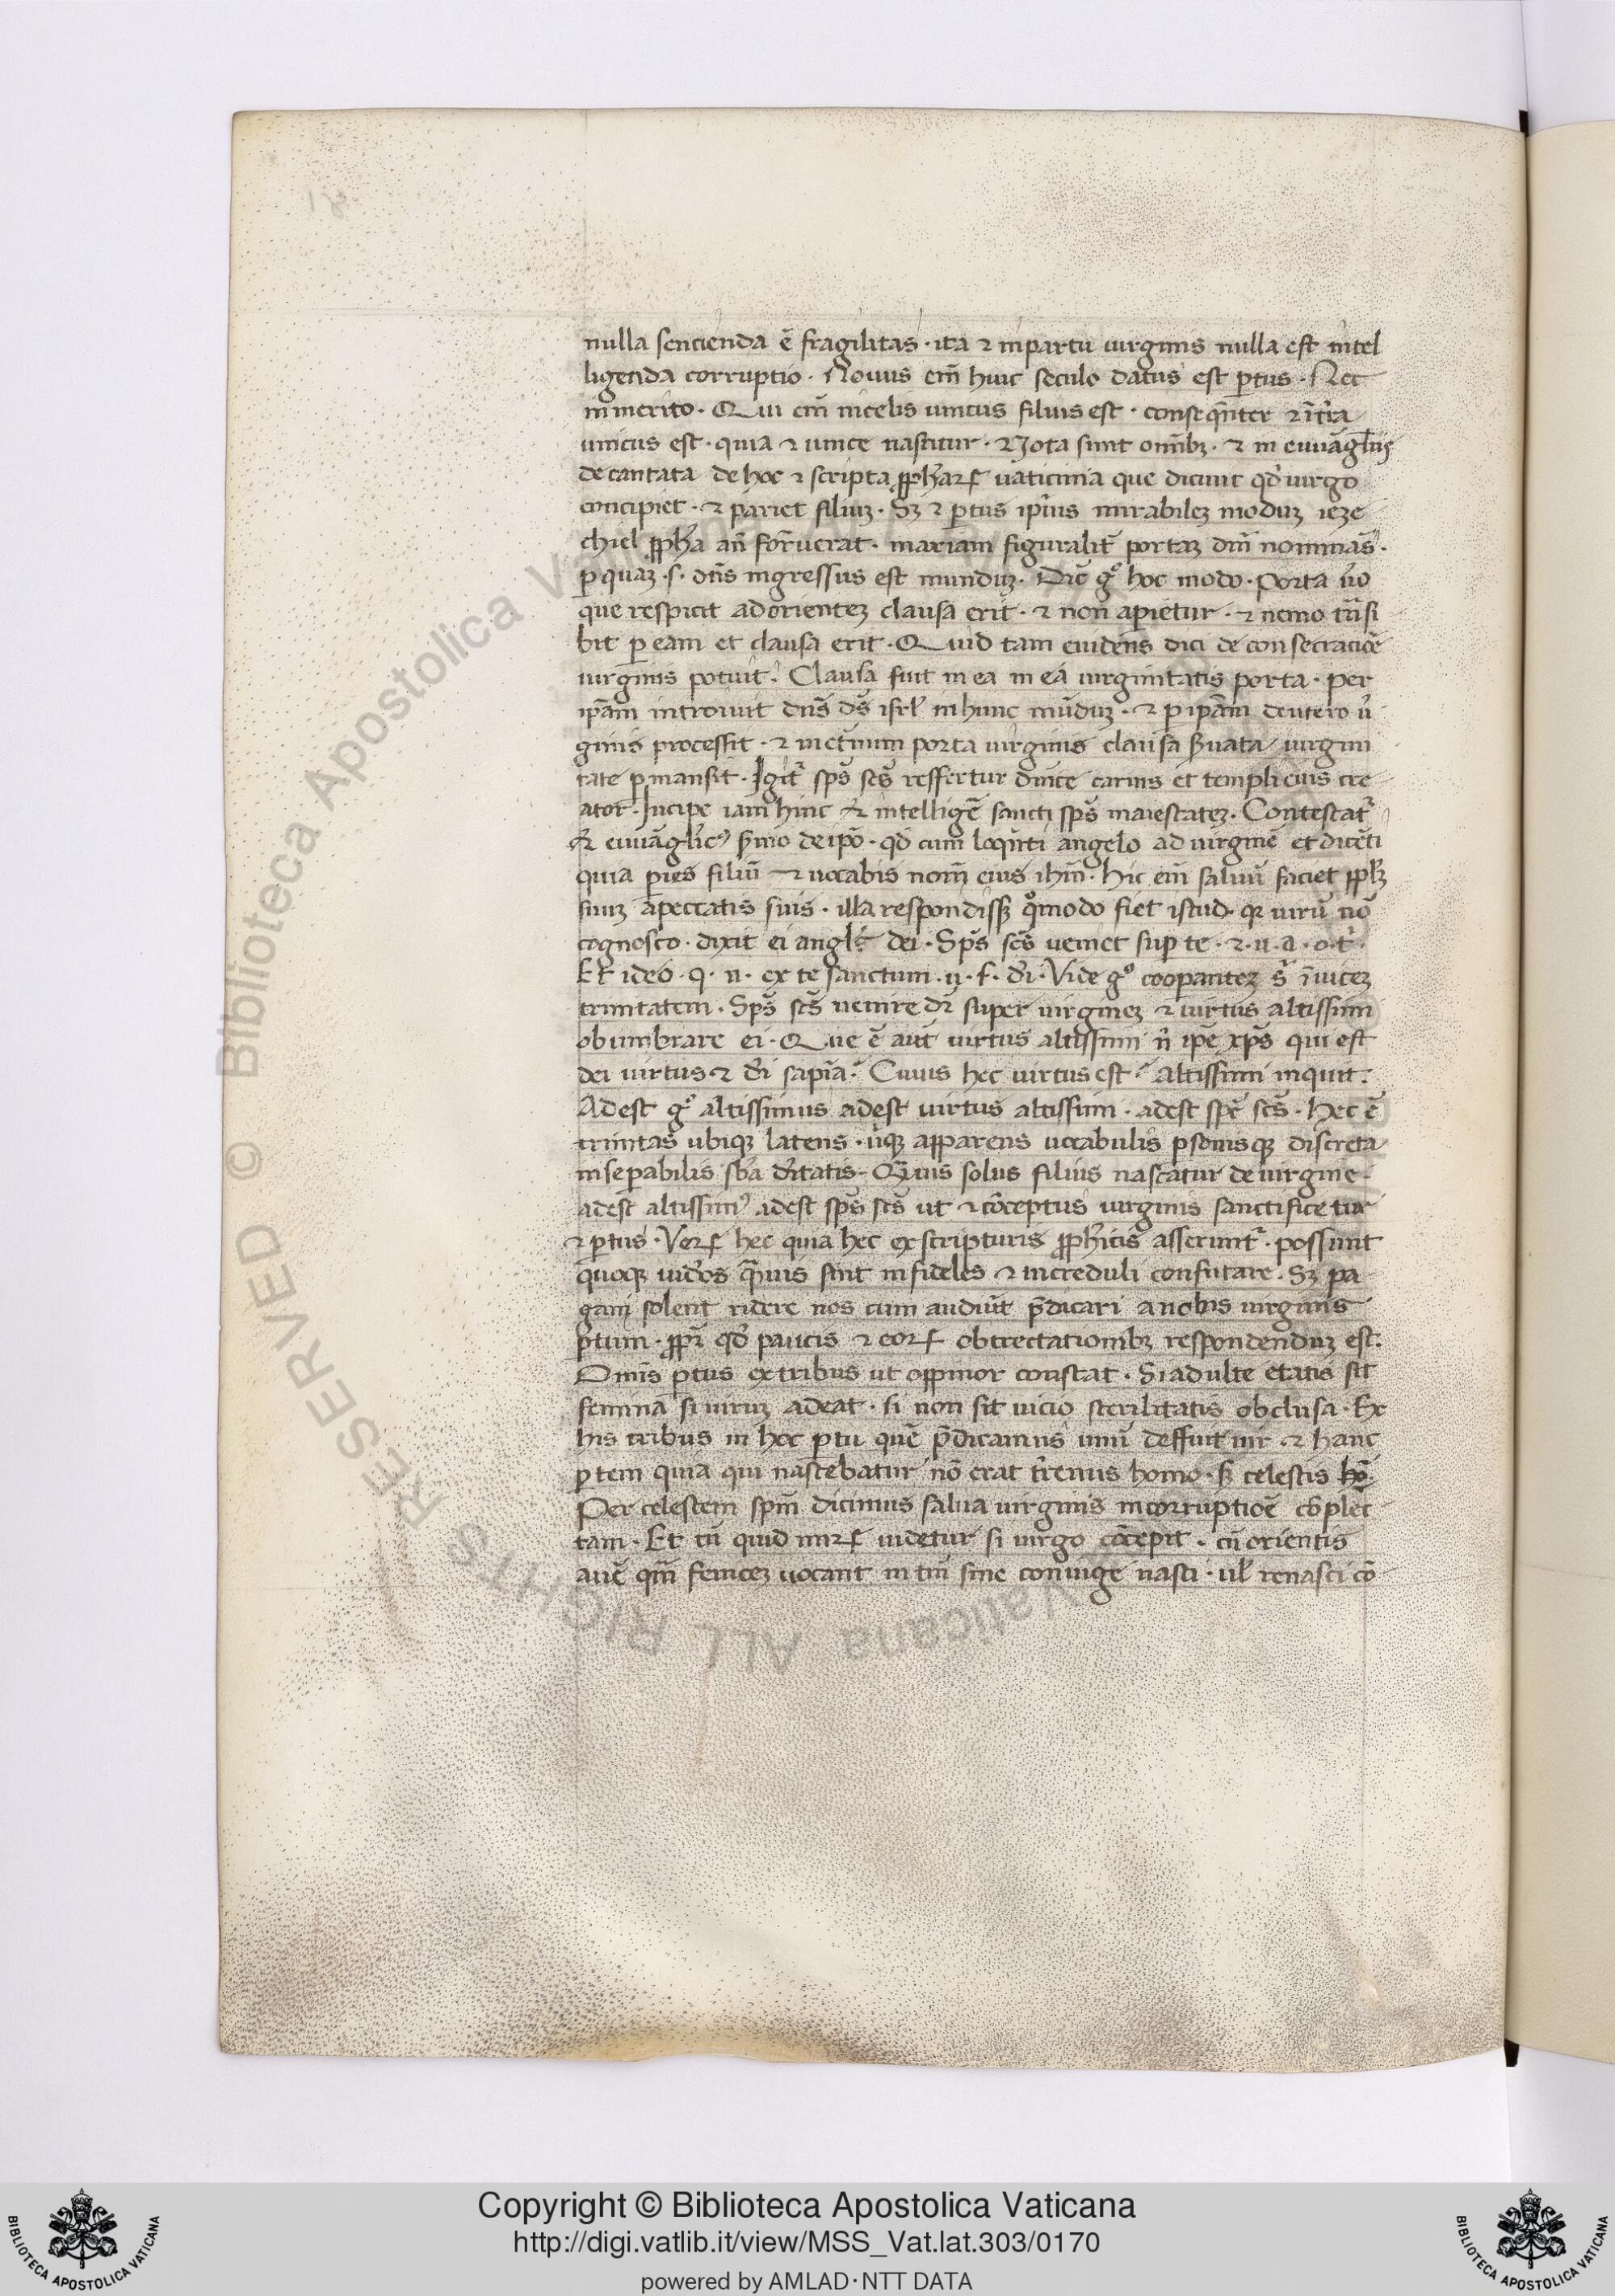 nulla sencienda ē fragilitas · ita ⁊ in partu uirginis nulla est intel
ligenda corruptio · Nouus em̄ huic seculo datus est ptus · Nec
inmerito · Qui em̄ in celis unicus filius est · conseqn̄ter ⁊ ī tr̄a
unicus est · quia ⁊ unice nascitur · Nota sunt om̄ibꝫ · ⁊ in euuāgliis
decantata de hoc ⁊ scripta ꝓph̄aꝝ uaticinia que dicunt qd̄ uirgo
concipiet · ⁊ pariet filiuꝫ · Sꝫ ⁊ ptus ip̄ius mirabileꝫ moduꝫ ieze
chiel ꝓph̄a an̄ for̄uerat · mariam figuralit̄ portaꝫ dn̄i nominās ·
ꝑ quaꝫ · s · dn̄s ingressus est munduꝫ · Dic̄ gº hoc modo · Porta ūo
que respicit ad orienteꝫ clausa erit · ⁊ non aperietur · ⁊ nemo trāsi
bit ꝑ eam et clausa erit · Quid tam euidens dici de consecracōe
uirginis potuit · Clausa fuit in ea in ea uirginitatis porta · per
ip̄am introiuit dn̄s ds̄ isrl̄ in hunc mūduꝫ · ⁊ ꝑ ip̄am deutero ū
ginis processit · ⁊ in et̄num porta uirginis clausa s̄uata uirgini
tate ꝑmansit · Igit᷑ sp̄s sc̄s reffertur dn̄ice carnis et templi eius cre
ator · Incipe iam hinc ⁊ intelligē sancti sp̄s maiestateꝫ · Contestat᷑
⁊ euuāgl̄icꝰ s̄mo de ip̄o · qd̄ cum loqn̄ti angelo ad uirginē et dicēti
quia paries filiū ⁊ uocabis nom̄ eius ihm̄ · hic em̄ saluū faciet pp̄lꝫ
suuꝫ a peccatis suis · illa respondissꝫ qºmodo fiet istud · qr uirū nō
cognosco · dixit ei angl̄s dei · Sp̄s sc̄s ueniet suꝑ te · ⁊ · u · a · o · t ·
Et ideo · q · n · ex te sanctum · u · f · dī · Vide gº cooꝑanteꝫ s ī uiceꝫ
trinitatem · Sp̄s sc̄s uenire dr̄ super uirgineꝫ ⁊ uirtus altissimi
obumbrare ei · Que ē aut̄ uirtus altissimi n̄ ip̄e xp̄s qui est
dei uirtus ⁊ dī sapīa · Cuius hec uirtus est · Altissimi inquit ·
Adest gº altissimus adest uirtus altissimi · adest sp̄s sc̄s · hec ē
trinitas ubiqꝫ latens · ūqꝫ apparens uocabulis ꝑsonisqꝫ discreta
inseꝑabilis sb̄a dītatis · Qm̄uis solus filius nascatur de uirgine ·
adest altissimꝰ adest sp̄s sc̄s ut ⁊ cōceptus uirginis sanctificetur
⁊ ptus · Veꝝ hec quia hec ex scripturis ꝓph̄icis asserunt᷑ · possunt
quoqꝫ iudeos qm̄uis sint infideles ⁊ increduli confutare · Sꝫ pa
gani solent ridere nos cum audiūt p̄dicari a nobis uirginis
ptum · ꝓpt̄ qd̄ paucis ⁊ eoꝝ obtrectationibꝫ respondenduꝫ est ·
Omīs ptus ex tribus ut oppinor constat · Si adulte etatis sit
femina si uiruꝫ adeat · si non sit uicio sterilitatis obclusa · Ex
his tribus in hoc ptu quē p̄dicamus unū deffuit uir · ⁊ hanc
ptem quia qui nascebatur nō erat t̄renus homo · sꝫ celestis hō ·
Per celestem sp̄m dicimus salua uirginis incorruptiōe cōplec
tam · Et tn̄ quid miꝝ uidetur si uirgo cōcepit · cū orientis
auē qm̄ feniceꝫ uocant in tm̄ sine coniuge nasci · ul̄ renasci cō
Copyright © Biblioteca Apostolica Vaticana
http://digi.vatlib.it/view/MSS_Vat.lat.303/0170
powered by AMLAD·NTT DATA
BIBLIOTECA APOSTOLICA VATICANA
BIBLIOTECA APOSTOLICA VATICANA
© Biblioteca Apostolica Vaticana ALL RIGHTS RESERVED